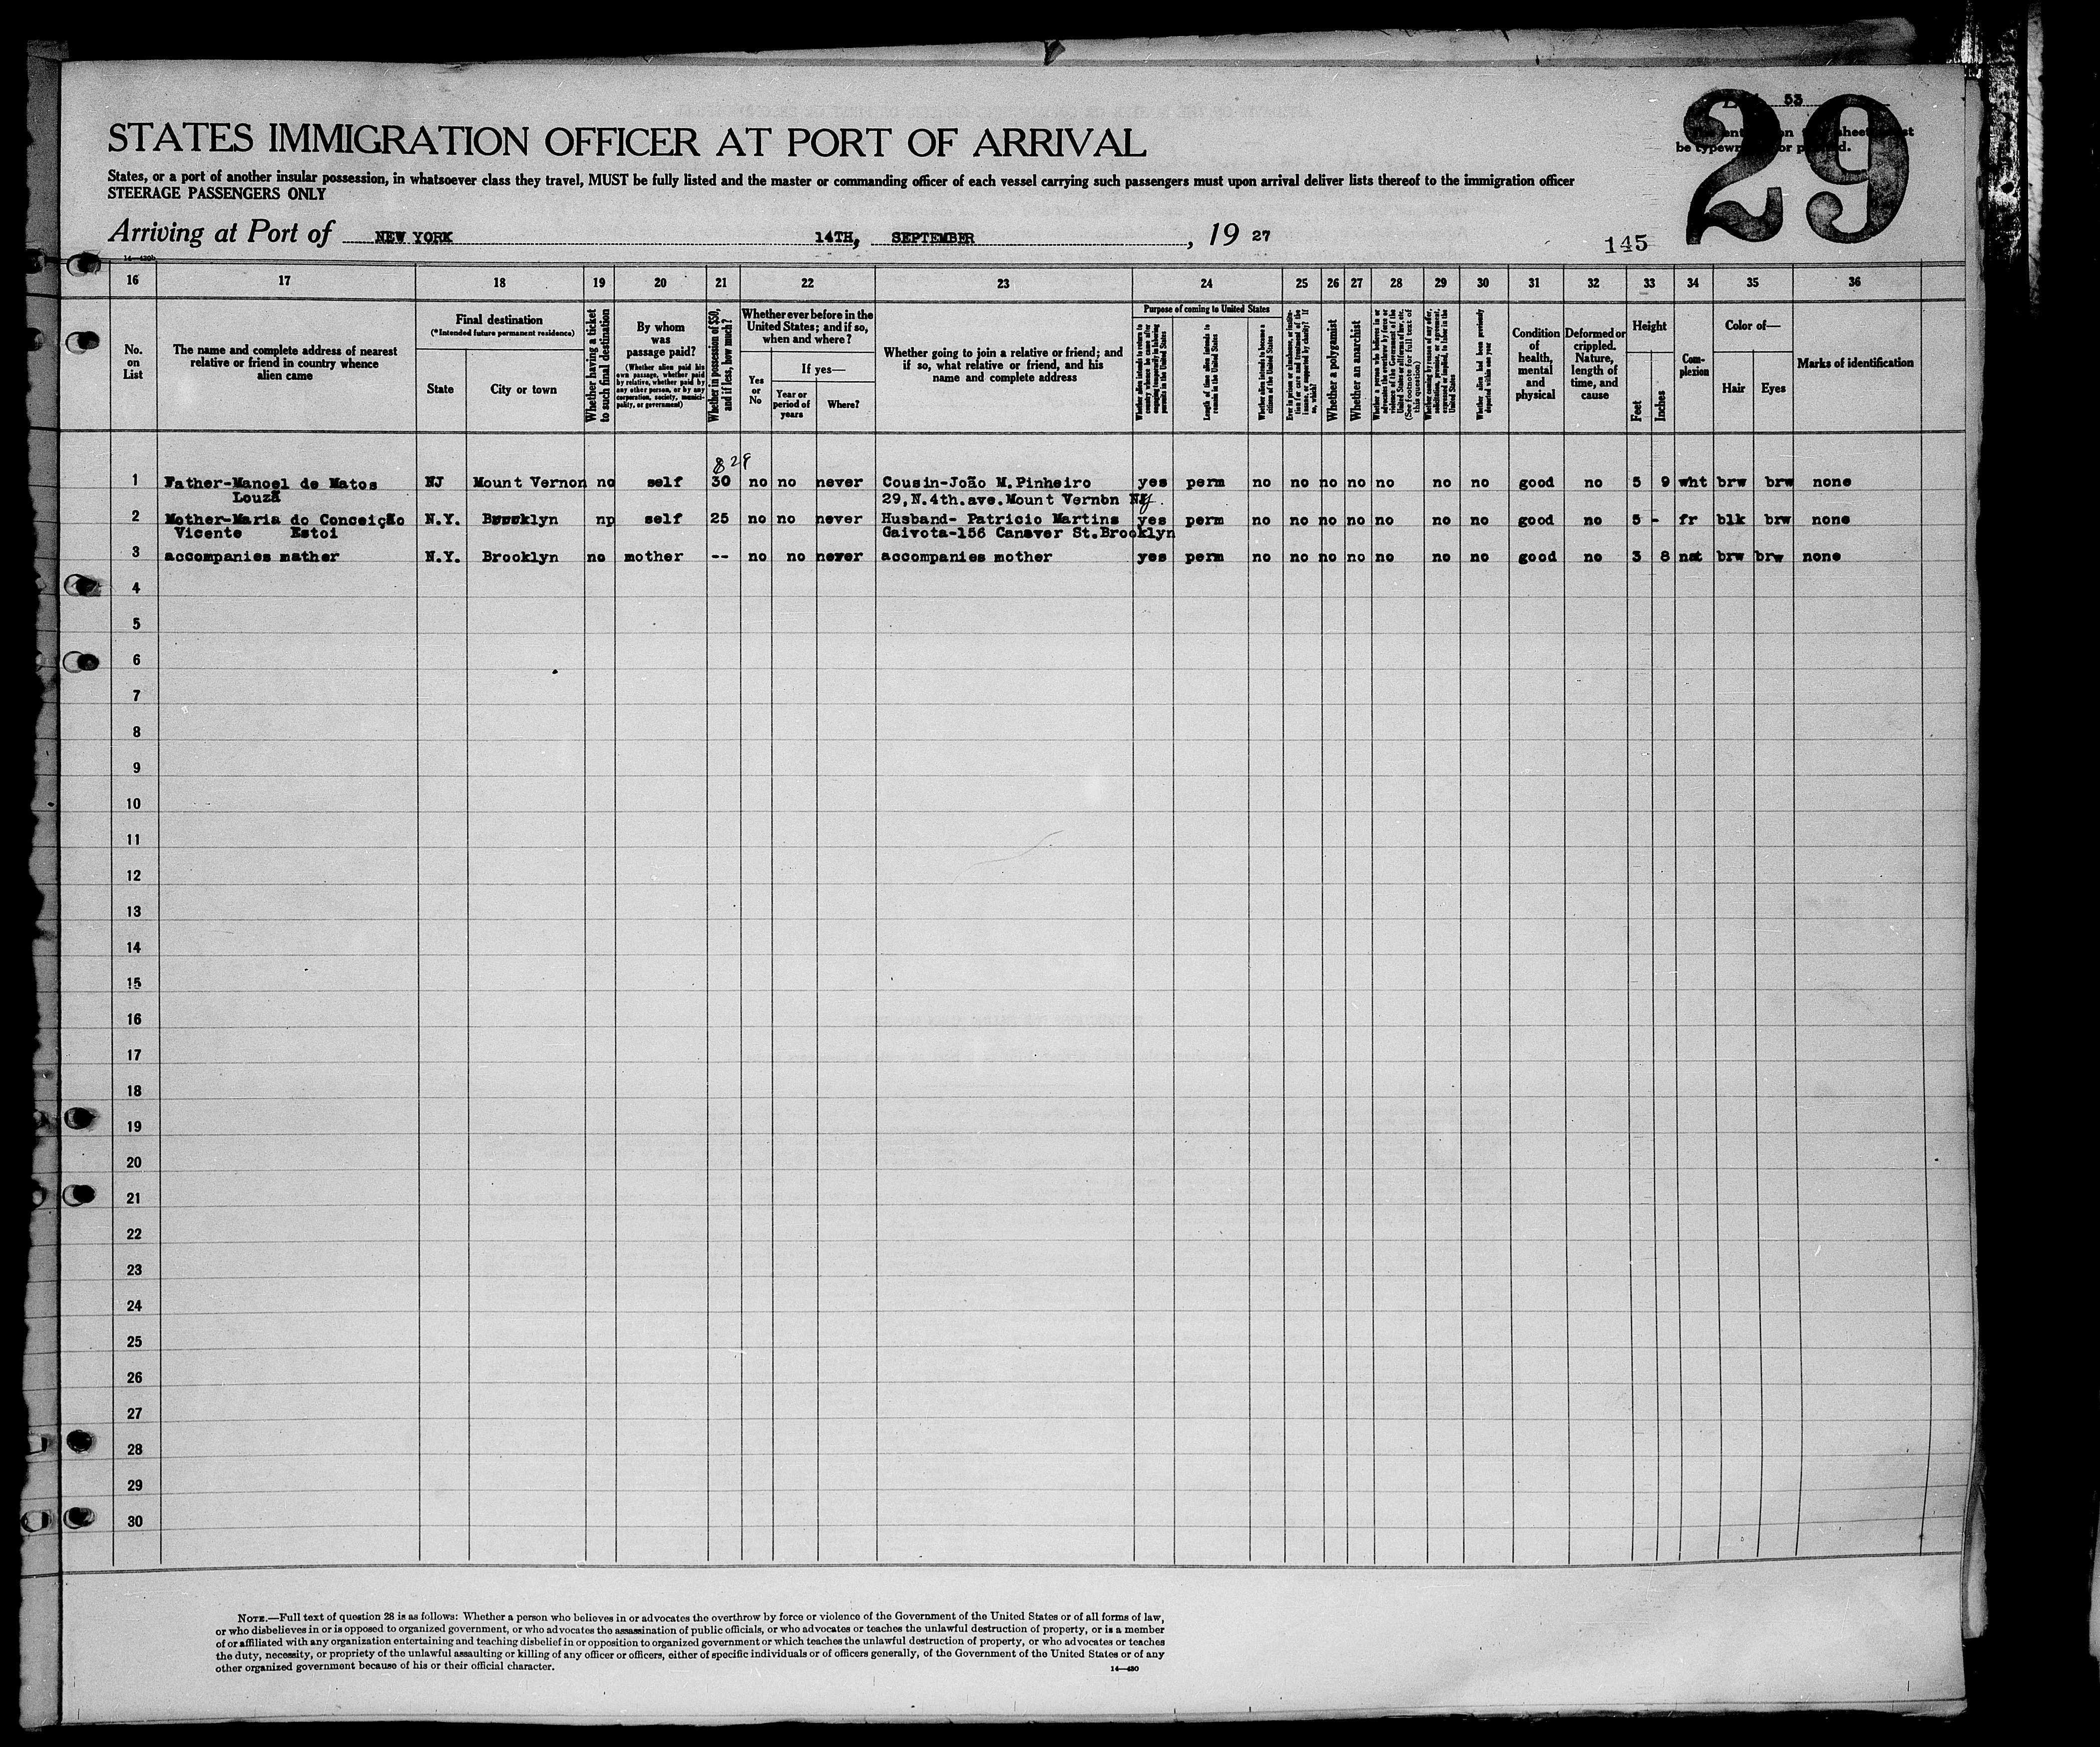 53
29
STATES IMMIGRATION OFFICER AT PORT OF ARRIVAL
be typewr or p d.
States, or a port of another insular possession, in whatsoever class they travel, MUST be fully listed and the master or commanding officer of each vessel carrying such passengers must upon arrival deliver lists thereof to the immigration officer
STEERAGE PASSENGERS ONLY
Arriving at Port of NEW YORK 14TH, SEPTEMBER, 19 27
145
16 17 18 19 20 21 22 23 24 25 26 27 28 29 30 31 32 33 34 35 36
No. on List
The name and complete address of nearest relative or friend in country whence alien came
Final destination
(*Intended future permanent residence)
State
City or town
Whether having a ticket to such final destination
By whom was passage paid?
(Whether alien paid his own passage, whether paid by relative, whether paid by any other person, or by any corporation, society, municipality, or government)
Whether in possession of $50, and if less, how much?
Whether ever before in the United States; and if so, when and where?
Yes or No
If yes—
Year or period of years
Where?
Whether going to join a relative or friend; and if so, what relative or friend, and his name and complete address
Purpose of coming to United States
Whether alien intends to return to country whence he came after engaging temporarily in laboring pursuits in the United States
Length of time alien intends to remain in the United States
Whether alien intends to become a citizen of the United States
Ever in prison or almshouse, or institution for care and treatment of the insane, or supported by charity? If so, which?
Whether a polygamist
Whether an anarchist
Whether a person who believes in or advocates the overthrow by force or violence of the Government of the United States or all forms of law, etc. (See footnote for full text of this question)
Whether coming by reason of any offer, solicitation, promise, or agreement, expressed or implied, to labor in the United States
Whether alien had been previously deported within one year
Condition of health, mental and physical
Deformed or crippled. Nature, length of time, and cause
Height
Feet
Inches
Com-plexion
Color of—
Hair
Eyes
Marks of identification
$29
1 Father-Manoel de Matos NJ Mount Vernon no self 30 no no never Cousin-João M.Pinheiro yes perm no no no no no no no good no 5 9 wht brw brw none
Louzã 29,N.4th.ave.Mount Vernon NY.
2 Mother-Maria do Conceição N.Y. Brooklyn np self 25 no no never Husband- Patricio Martins yes perm no no no no no no no good no 5 - fr blk brw none
Vicente Estoi Gaivota-156 Canaver St.Brooklyn
3 accompanies mather N.Y. Brooklyn no mother -- no no never accompanies mother yes perm no no no no no no no good no 3 8 nat brw brw none
4
5
6
7
8
9
10
11
12
13
14
15
16
17
18
19
20
21
22
23
24
25
26
27
28
29
30
NOTE.—Full text of question 28 is as follows: Whether a person who believes in or advocates the overthrow by force or violence of the Government of the United States or of all forms of law,
or who disbelieves in or is opposed to organized government, or who advocates the assassination of public officials, or who advocates or teaches the unlawful destruction of property, or is a member
of or affiliated with any organization entertaining and teaching disbelief in or opposition to organized government or which teaches the unlawful destruction of property, or who advocates or teaches
the duty, necessity, or propriety of the unlawful assaulting or killing of any officer or officers, either of specific individuals or of officers generally, of the Government of the United States or of any
other organized government because of his or their official character.
14—430